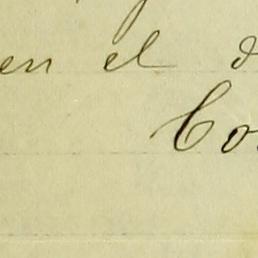 en el d
Co